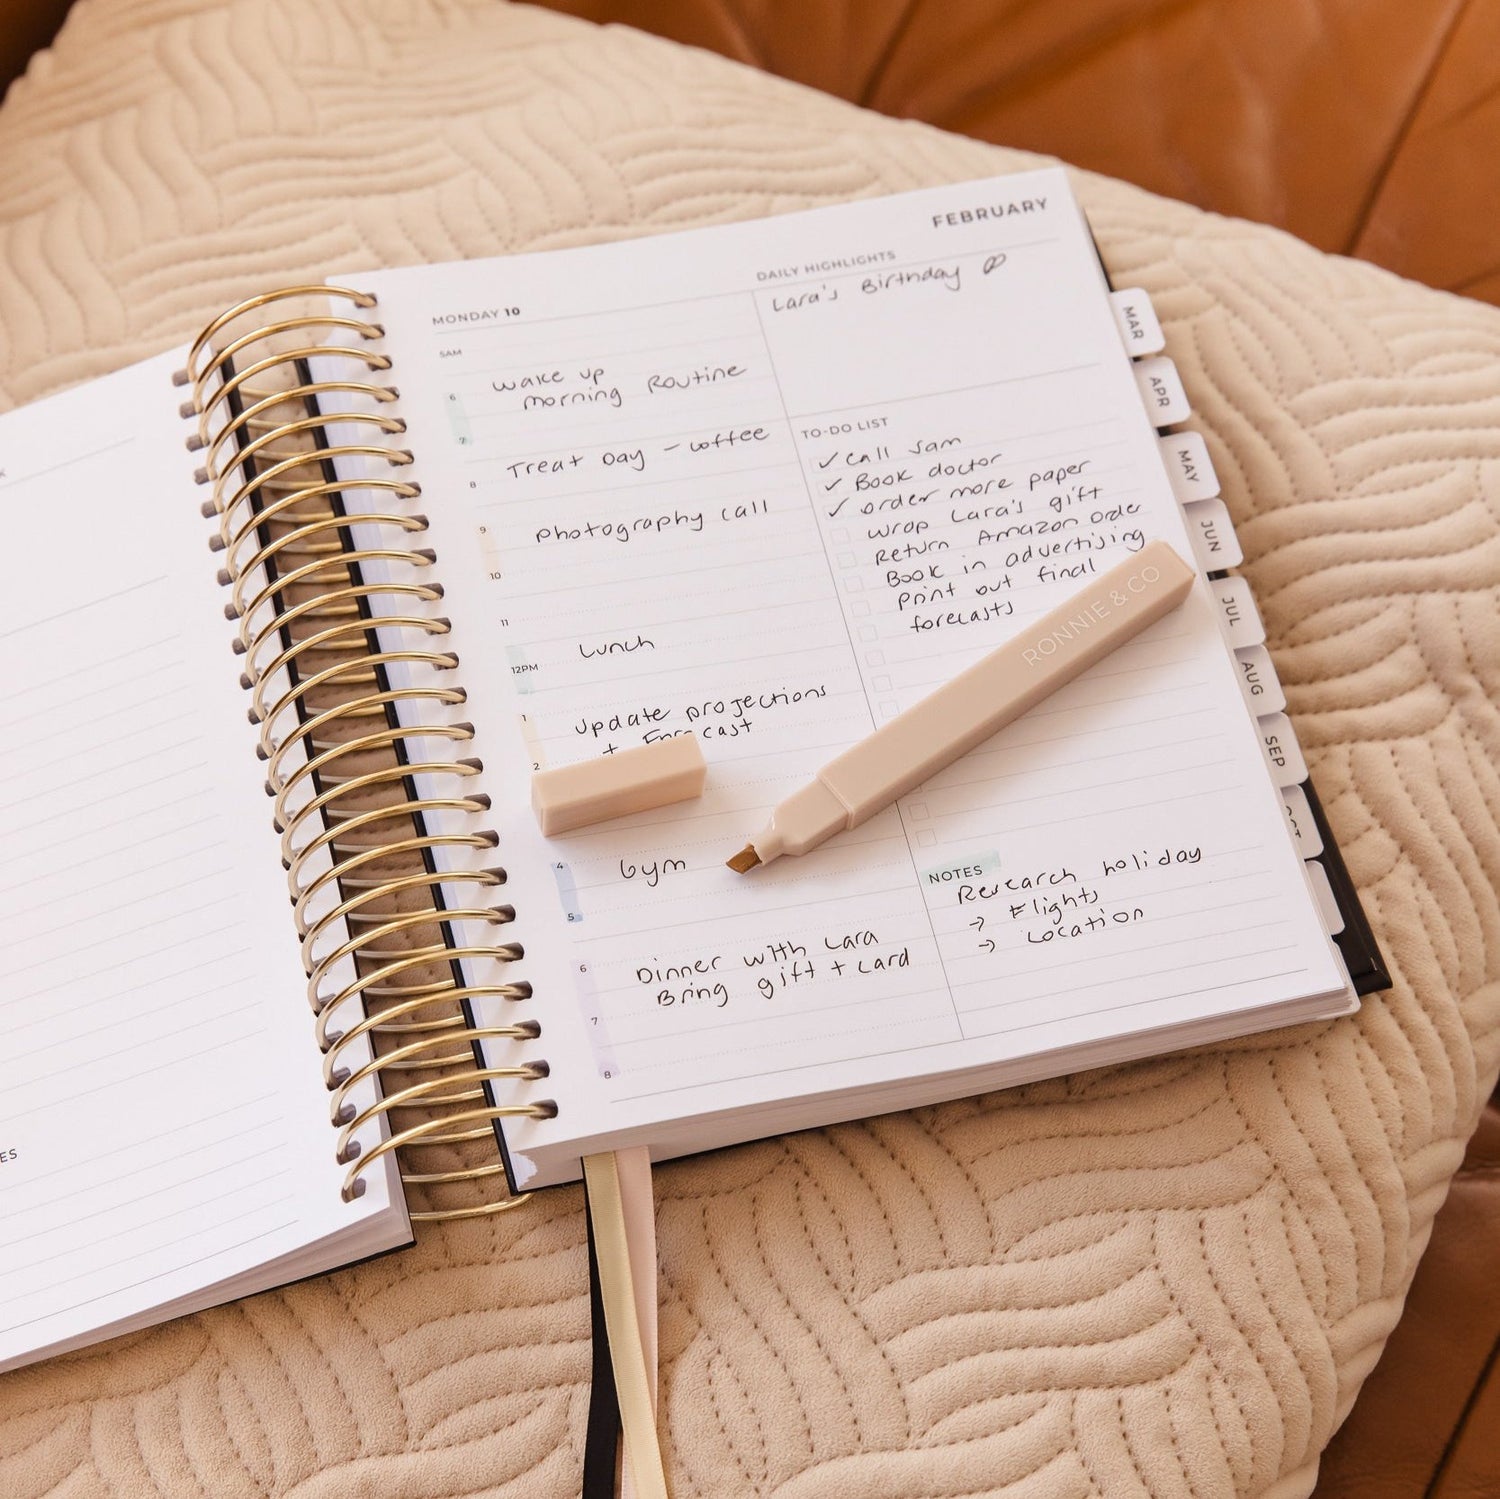 FEBRUARY
MONDAY 10
5AM
6
wake up
morning Routine
7
Treat Day - coffee
8
9
photography call
10
11
Lunch
12PM
1
update projections
+ Forecast
2
4
Gym
5
6
Dinner with Lara
Bring gift + card
7
8
DAILY HIGHLIGHTS
Lara's Birthday
TO-DO LIST
✓ call sam
✓ Book doctor
✓ order more paper
wrap Lara's gift
Return Amazon order
Book in advertising
print out final
forecasts
RONNIE & CO
NOTES
Research holiday
→ Flights
→ Location
MAR
APR
MAY
JUN
JUL
AUG
SEP
OCT